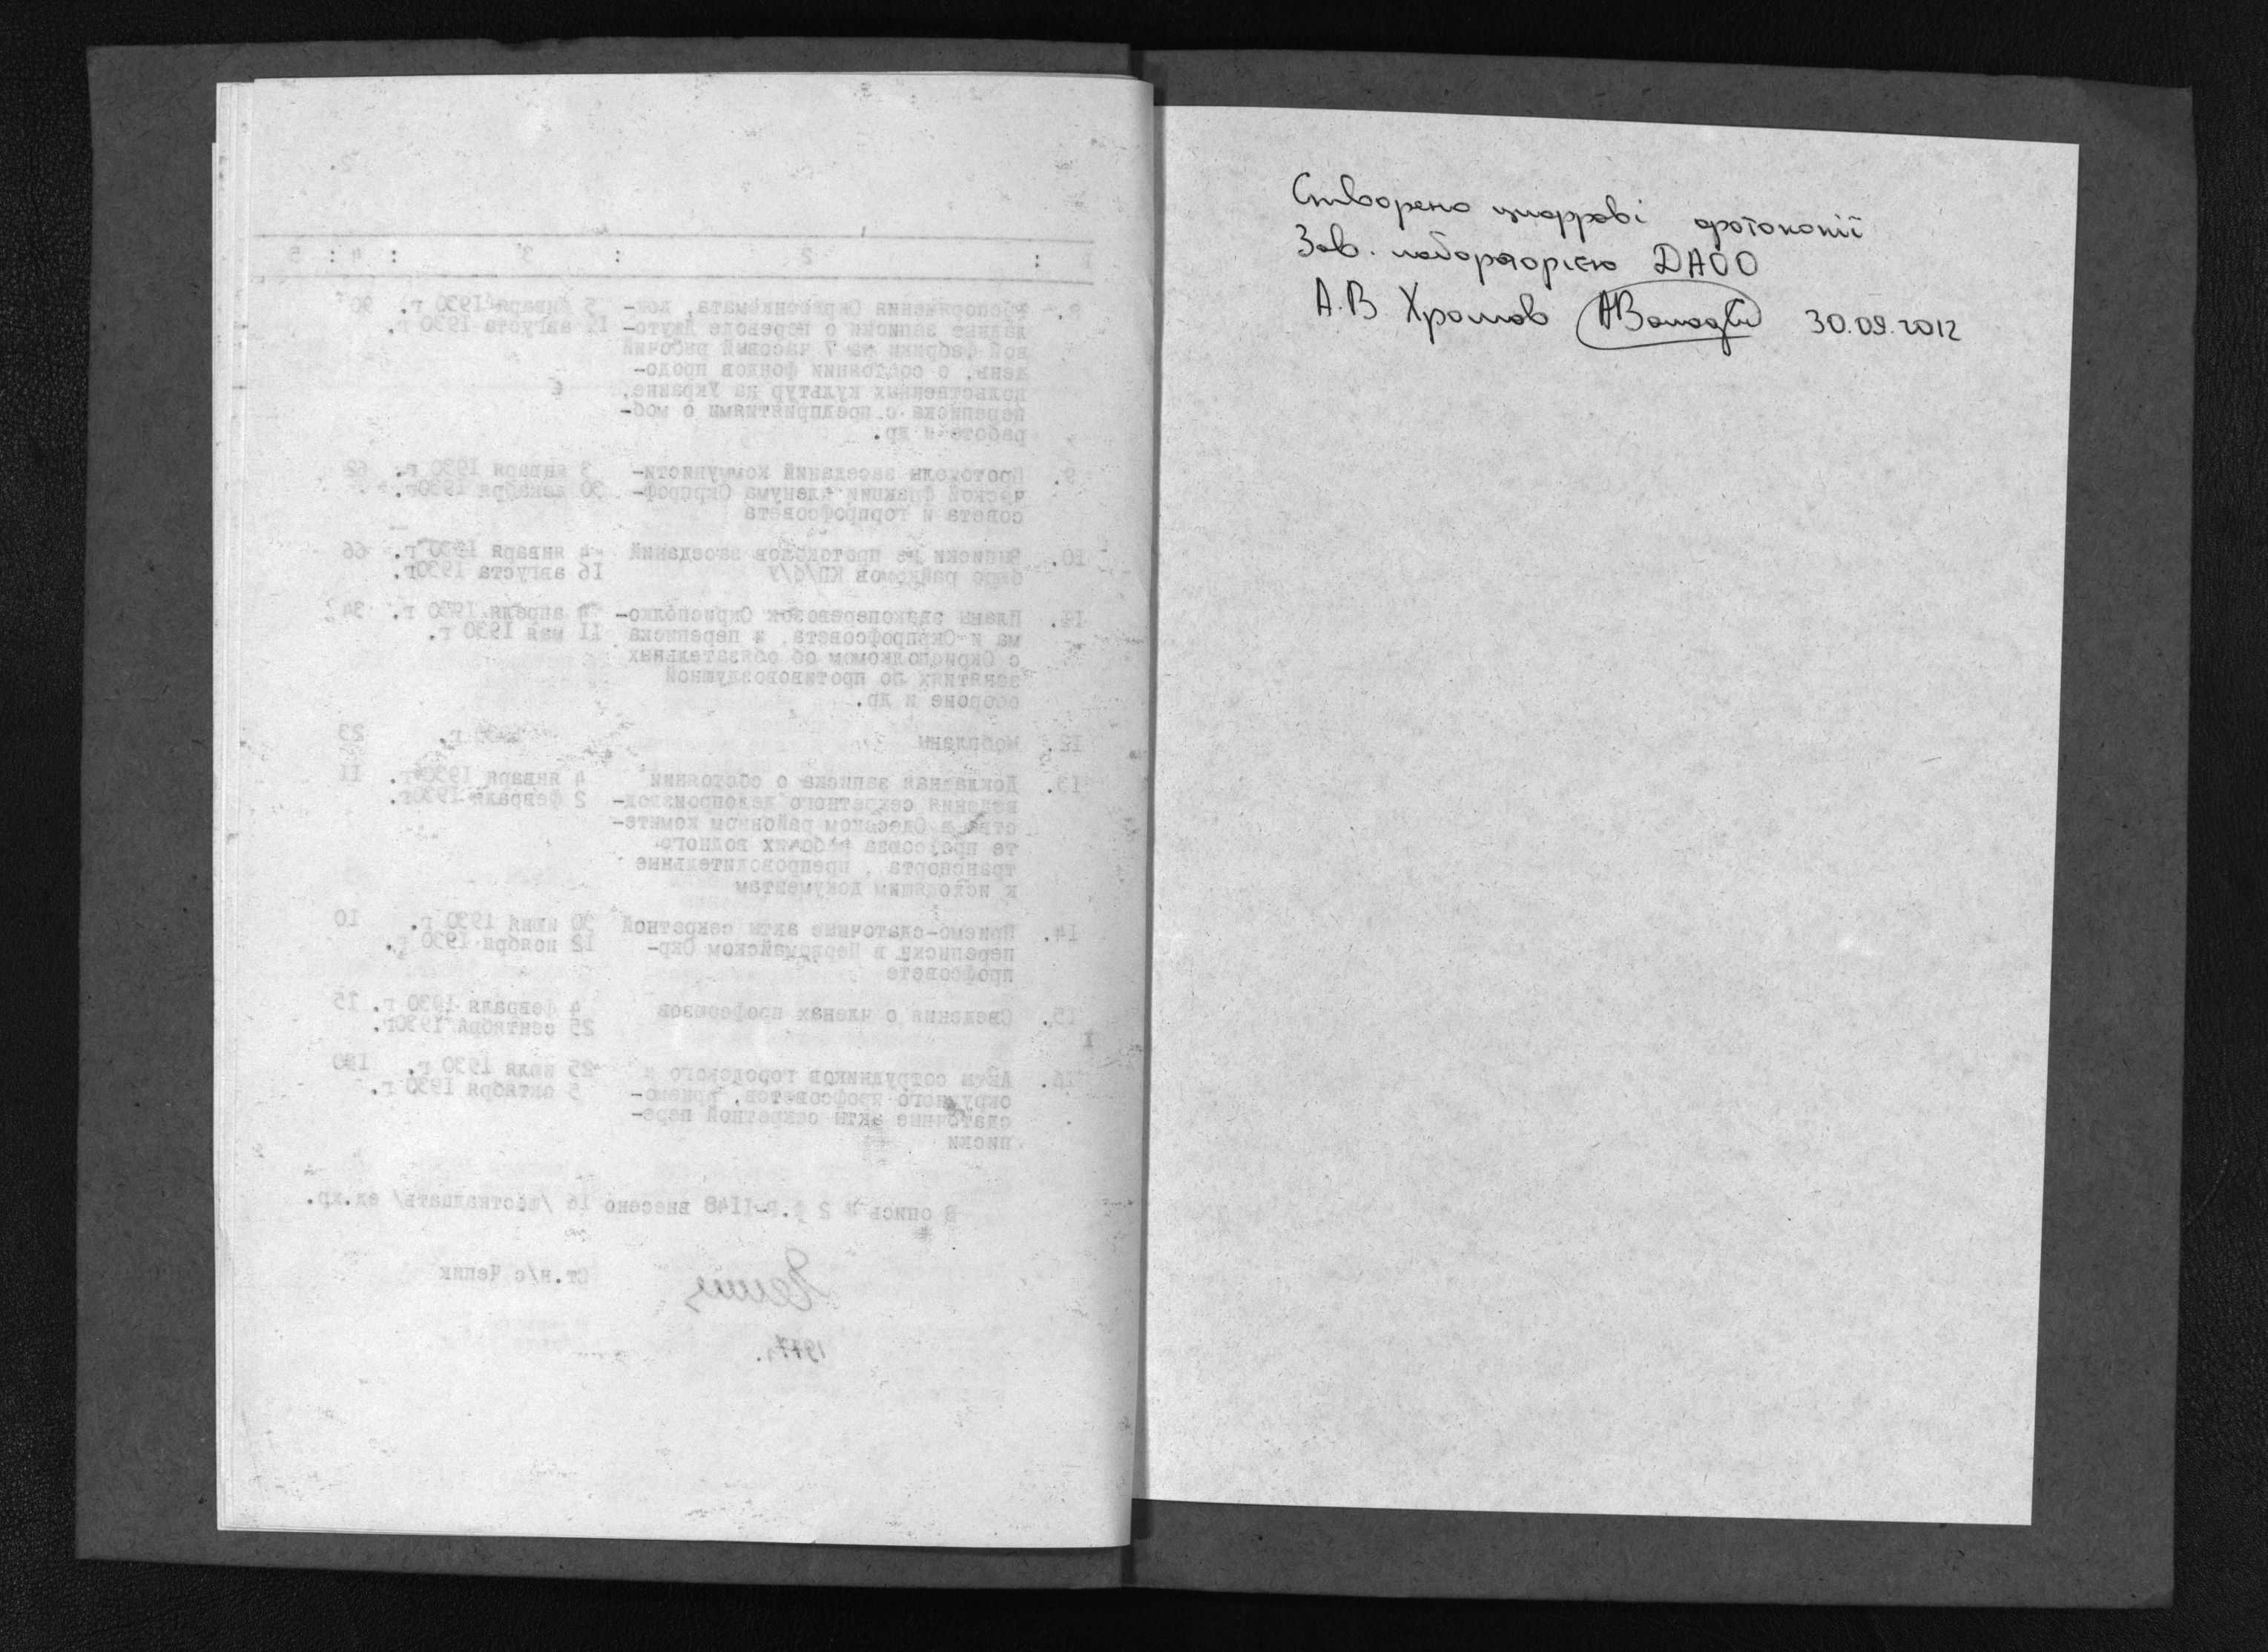 1 : 2 : 3 : 4 : 5
8. Распоряжения Окрвоенкомата, док- 5 января 1930 г. 90
ладные записки о переводе Джуто- 11 августа 1930 г.
вой фабрики на 7 часовый рабочий
день, о состоянии фондов продо-
вольственных культур на Украине,
переписка с предприятиями о моб-
работе и др.
9. Протоколы заседаний коммунисти- 3 января 1930 г. 62
ческой фракции пленума Окрпроф- 30 декабря 1930г.
совета и горпрофсовета
10. Выписки из протоколов заседаний 4 января 1930 г. 66
бюро райкомов КП/б/У 16 августа 1930г.
11. Планы эвакоперевозок Окрисполко- апреля 1930 г. 34
ма и Окрпрофсовета, и переписка 11 мая 1930 г.
с Окрисполкомом об обязательных
занятиях по противовоздушной
обороне и др.
12. Мобпланы 1930 г. 23
13. Докладная записка о состоянии 4 января 1930 г. 11
ведения секретного делопроизвод- 2 февраля 1930г.
ства в Одесском районном комите-
те профсоюза рабочих водного
транспорта, препроводительные
к исходящим документам
14. Приемо-сдаточные акты секретной 30 июня 1930 г. 10
переписки в Первомайском Окр- 12 ноября 1930 г.
профсовете
15. Сведения о членах профсоюзов 4 февраля 1930 г. 15
25 сентября 1930г.
16. Акты сотрудников городского и 25 июля 1930 г.
окружного профсоветов, приемо- 5 октября 1930 г.
сдаточные акты секретной пере-
писки
В опись № 2 ф.Р-1148 внесено 16 /шестнадцать/ ед.хр.
Ст.н/с Чепик
1977г.
Створено цифрові фотокопії
Зав. лабораторією ДАОО
А.В Хромов 30.09.2012